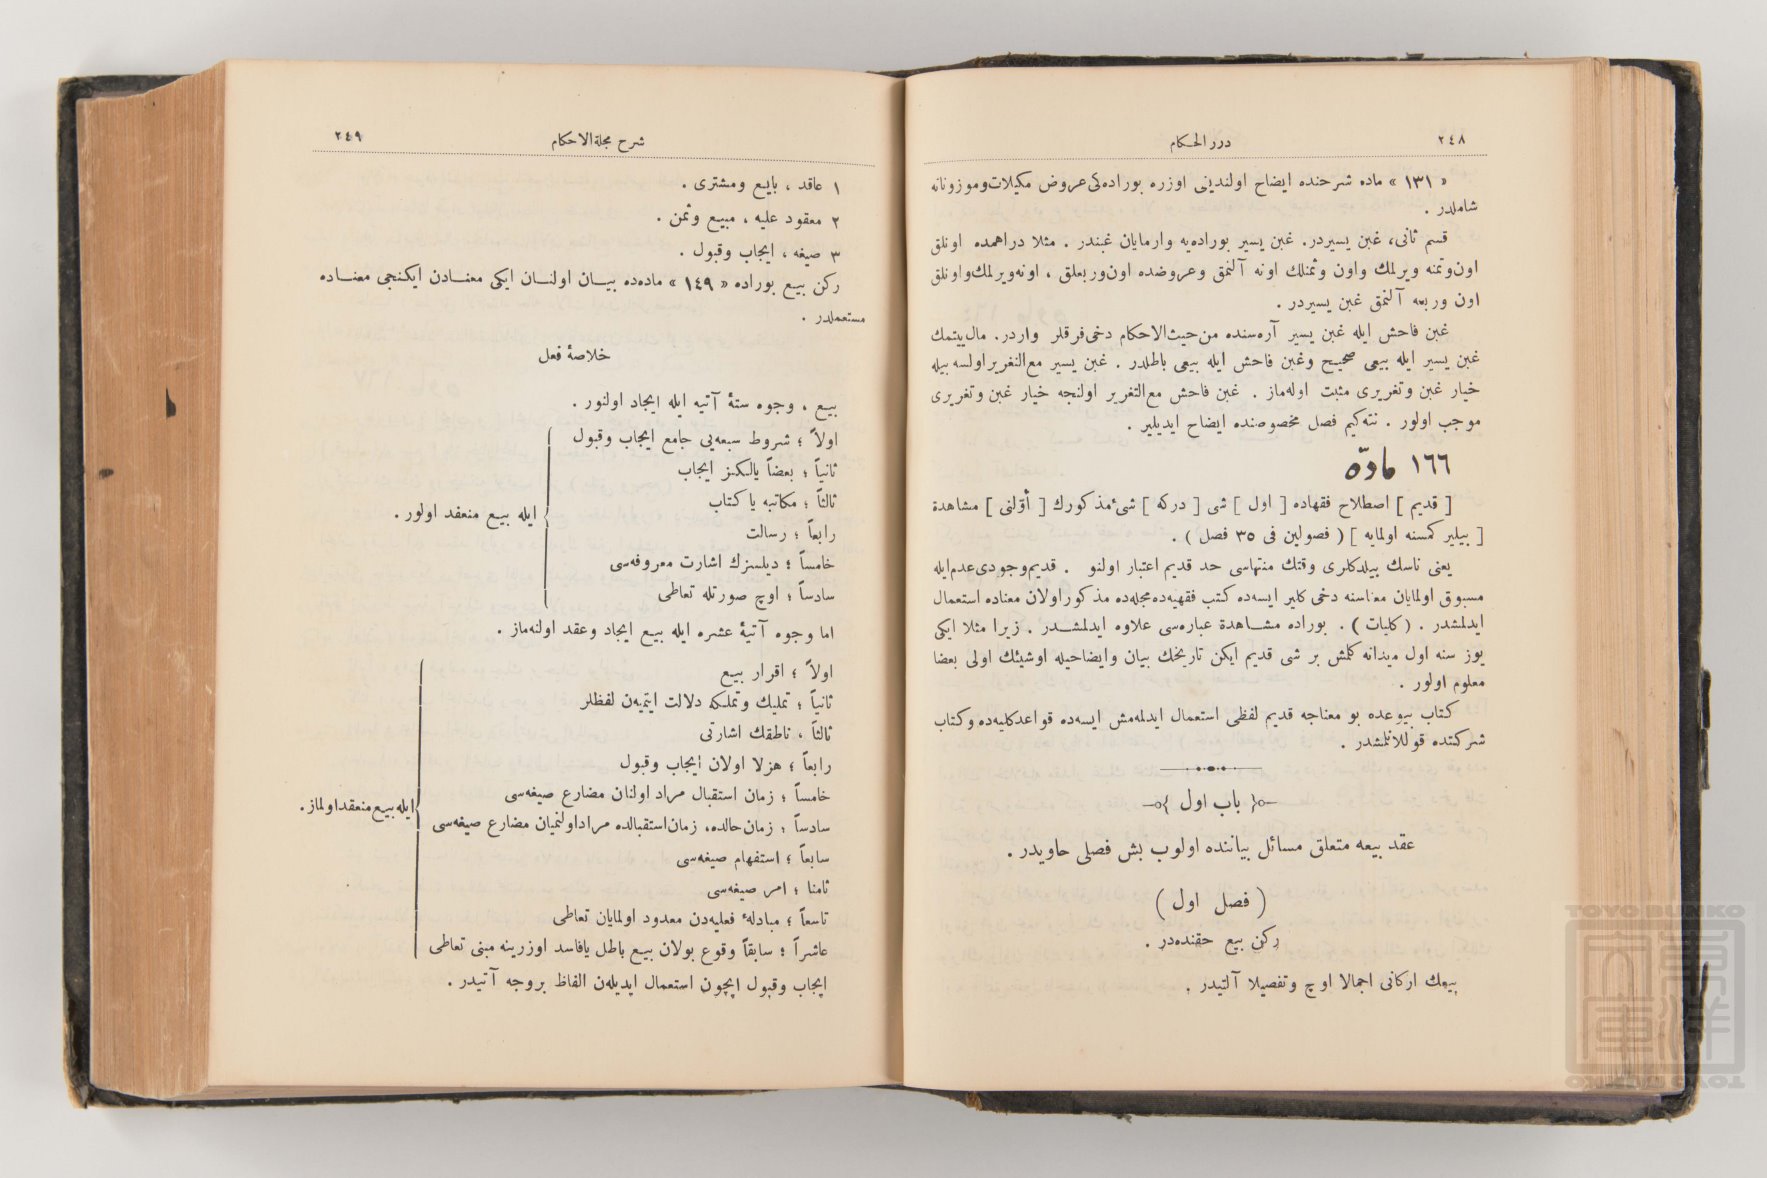 ٢٤٨
درر الحكام
« ١٣١ » ماده شرحنده ايضاح اولنديغی اوزره بوراده‌كی عروض مكيلات و موزوناته
شاملدر .
قسم ثانی، غبن يسيردر. غبن يسير بوراده‌يه وارمايان غبندر . مثلا دراهمده اونلق
اون و ثمنه ويرلمك و اون و ثمنلك اونه آلنمق و عروضده اون وربعلق ، اونه ويرلمك و اونلق
اون وربعه آلنمق غبن يسيردر .
غبن فاحش ايله غبن يسير آره‌سنده من حيث الاحكام دخی فرقلر واردر. مال يتيمك
غبن يسير ايله بيعی صحيح وغبن فاحش ايله بيعی باطلدر . غبن يسير مع التغرير اولسه بيله
خيار غبن وتغريری مثبت اوله‌ماز . غبن فاحش مع التغرير اولنجه خيار غبن وتغريری
موجب اولور . نته‌كيم فصل مخصوصنده ايضاح ايديلير .
١٦٦ مادّه
[ قديم ] اصطلاح فقهاده [ اول ] شی [ دركه ] شیٔ مذكورك [ أوّلنی ] مشاهدة
[ بيلير كمسنه اولمايه ] ( فصولين فی ٣٥ فصل ) .
يعنی ناسك بيلدكلری وقتك منتهاسی حد قديم اعتبار اولنو . قديم وجودی عدم ايله
مسبوق اولمايان معناسنه دخی كلير ايسه‌ده كتب فقهيه‌ده مجله‌ده مذكور اولان معناده استعمال
ايدلمشدر . ( كليات ) . بوراده مشاهدة عباره‌سی علاوه ايدلمشدر . زيرا مثلا ايكی
يوز سنه اول ميدانه كلمش بر شی قديم ايكن تاريخك بيان وايضاحيله اوشيئك اولی بعضا
معلوم اولور .
كتاب بيوعده بو معناجه قديم لفظی استعمال ايدلمه‌مش ايسه‌ده قواعد كليه‌ده وكتاب
شركتده قوللانلمشدر .
باب اول
عقد بيعه متعلق مسائل بياننده اولوب بش فصلی حاويدر .
( فصل اول )
ركن بيع حقنده‌در .
بيعك اركانی اجمالا اوچ وتفصيلا آلتيدر .
شرح مجلة الاحكام
٢٤٩
١ عاقد ، بايع ومشتری .
٢ معقود عليه ، مبيع وثمن .
٣ صيغه ، ايجاب وقبول .
ركن بيع بوراده « ١٤٩ » ماده‌ده بيان اولنان ايكی معنادن ايكنجی معناده
مستعملدر .
خلاصهٔ فعل
بيع ، وجوه ستهٔ آتيه ايله ايجاد اولنور .
اولاً ؛ شروط سبعه‌يی جامع ايجاب وقبول
ثانياً ؛ بعضاً يالكز ايجاب
ثالثاً ؛ مكاتبه يا كتاب
رابعاً ؛ رسالت
خامساً ؛ ديلسزك اشارت معروفه‌سی
سادساً ؛ اوچ صورتله تعاطی
ايله بيع منعقد اولور .
اما وجوه آتيهٔ عشره ايله بيع ايجاد وعقد اولنه‌ماز .
اولاً ؛ اقرار بيع
ثانياً ؛ تمليك وتملكه دلالت ايتميه‌ن لفظلر
ثالثاً ، ناطقك اشارتی
رابعاً ؛ هزلا اولان ايجاب وقبول
خامساً ؛ زمان استقبال مراد اولنان مضارع صيغه‌سی
سادساً ؛ زمان حالده، زمان استقبالده مراد اولنميان مضارع صيغه‌سی
سابعاً ؛ استفهام صيغه‌سی
ثامنا ؛ امر صيغه‌سی
تاسعاً ؛ مبادلهٔ فعليه‌دن معدود اولمايان تعاطی
عاشراً ؛ سابقاً وقوع بولان بيع باطل يا فاسد اوزرينه مبنی تعاطی
ايله بيع منعقد اولماز .
ايجاب وقبول ايچون استعمال ايديله‌ن الفاظ بروجه آتيدر .
TOYO BUNKO
TOYO BUNKO